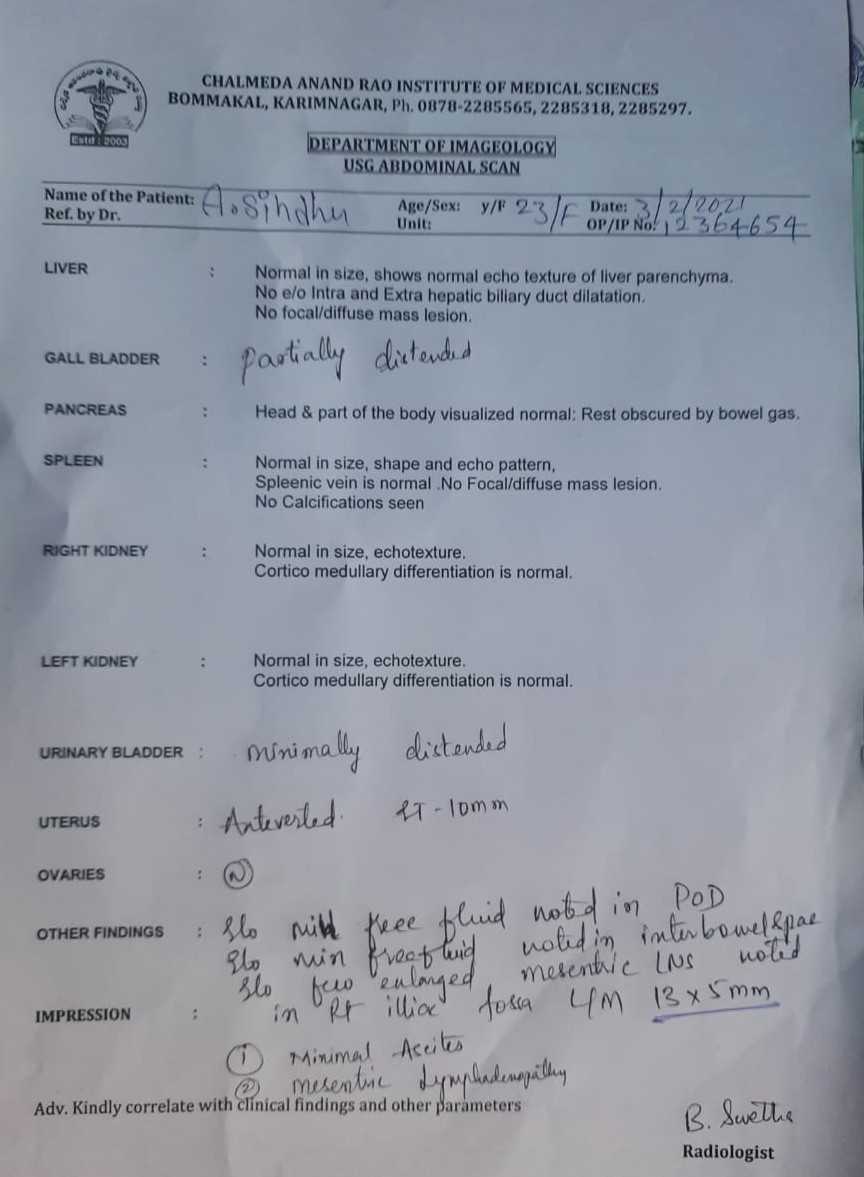 CHALMEDA ANAND RAO INSTITUTE OF MEDICAL SCIENCES
BOMMAKAL, KARIMNAGAR, Ph. 0878-2285565, 2285318, 2285297.
Estd : 2003
DEPARTMENT OF IMAGEOLOGY
USG ABDOMINAL SCAN
Name of the Patient: A. Sindhu Age/Sex: y/F 23/F Date: 3/2/2021
Ref. by Dr. Unit: OP/IP No: 12364654
LIVER : Normal in size, shows normal echo texture of liver parenchyma.
No e/o Intra and Extra hepatic biliary duct dilatation.
No focal/diffuse mass lesion.
GALL BLADDER : partially distended
PANCREAS : Head & part of the body visualized normal: Rest obscured by bowel gas.
SPLEEN : Normal in size, shape and echo pattern,
Spleenic vein is normal .No Focal/diffuse mass lesion.
No Calcifications seen
RIGHT KIDNEY : Normal in size, echotexture.
Cortico medullary differentiation is normal.
LEFT KIDNEY : Normal in size, echotexture.
Cortico medullary differentiation is normal.
URINARY BLADDER : minimally distended
UTERUS : Anteverted. ET - 10mm
OVARIES : N
OTHER FINDINGS : S/o mild free fluid noted in POD
S/o min free fluid noted in interbowel space
S/o few enlarged mesentric LNS noted
in Rt illiac fossa L/M 13 x 5 mm
IMPRESSION :
① Minimal Ascites
② mesentric Lymphadenopathy
Adv. Kindly correlate with clinical findings and other parameters
B. Swetha
Radiologist